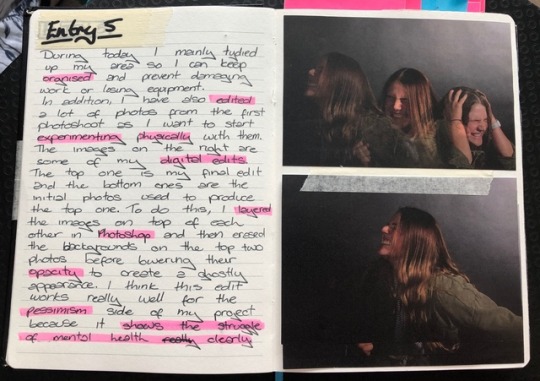 Entry 5
During today I mainly tudied
up my area so I can keep
organised and prevent damaging
work or losing equipment.
In addition, I have also edited
a lot of photos from the first
photoshoot as I want to start
experimenting physically with them.
The images on the right are
some of my digital edits.
The top one is my final edit
and the bottom ones are the
initial photos used to produce
the top one. To do this, I layered
the images on top of each
other in Photoshop and then erased
the backgrounds on the top two
photos before lowering their
opacity to create a ghostly
appearance. I think this edit
works really well for the
pessimism side of my project
because it shows the struggle
of mental health really clearly